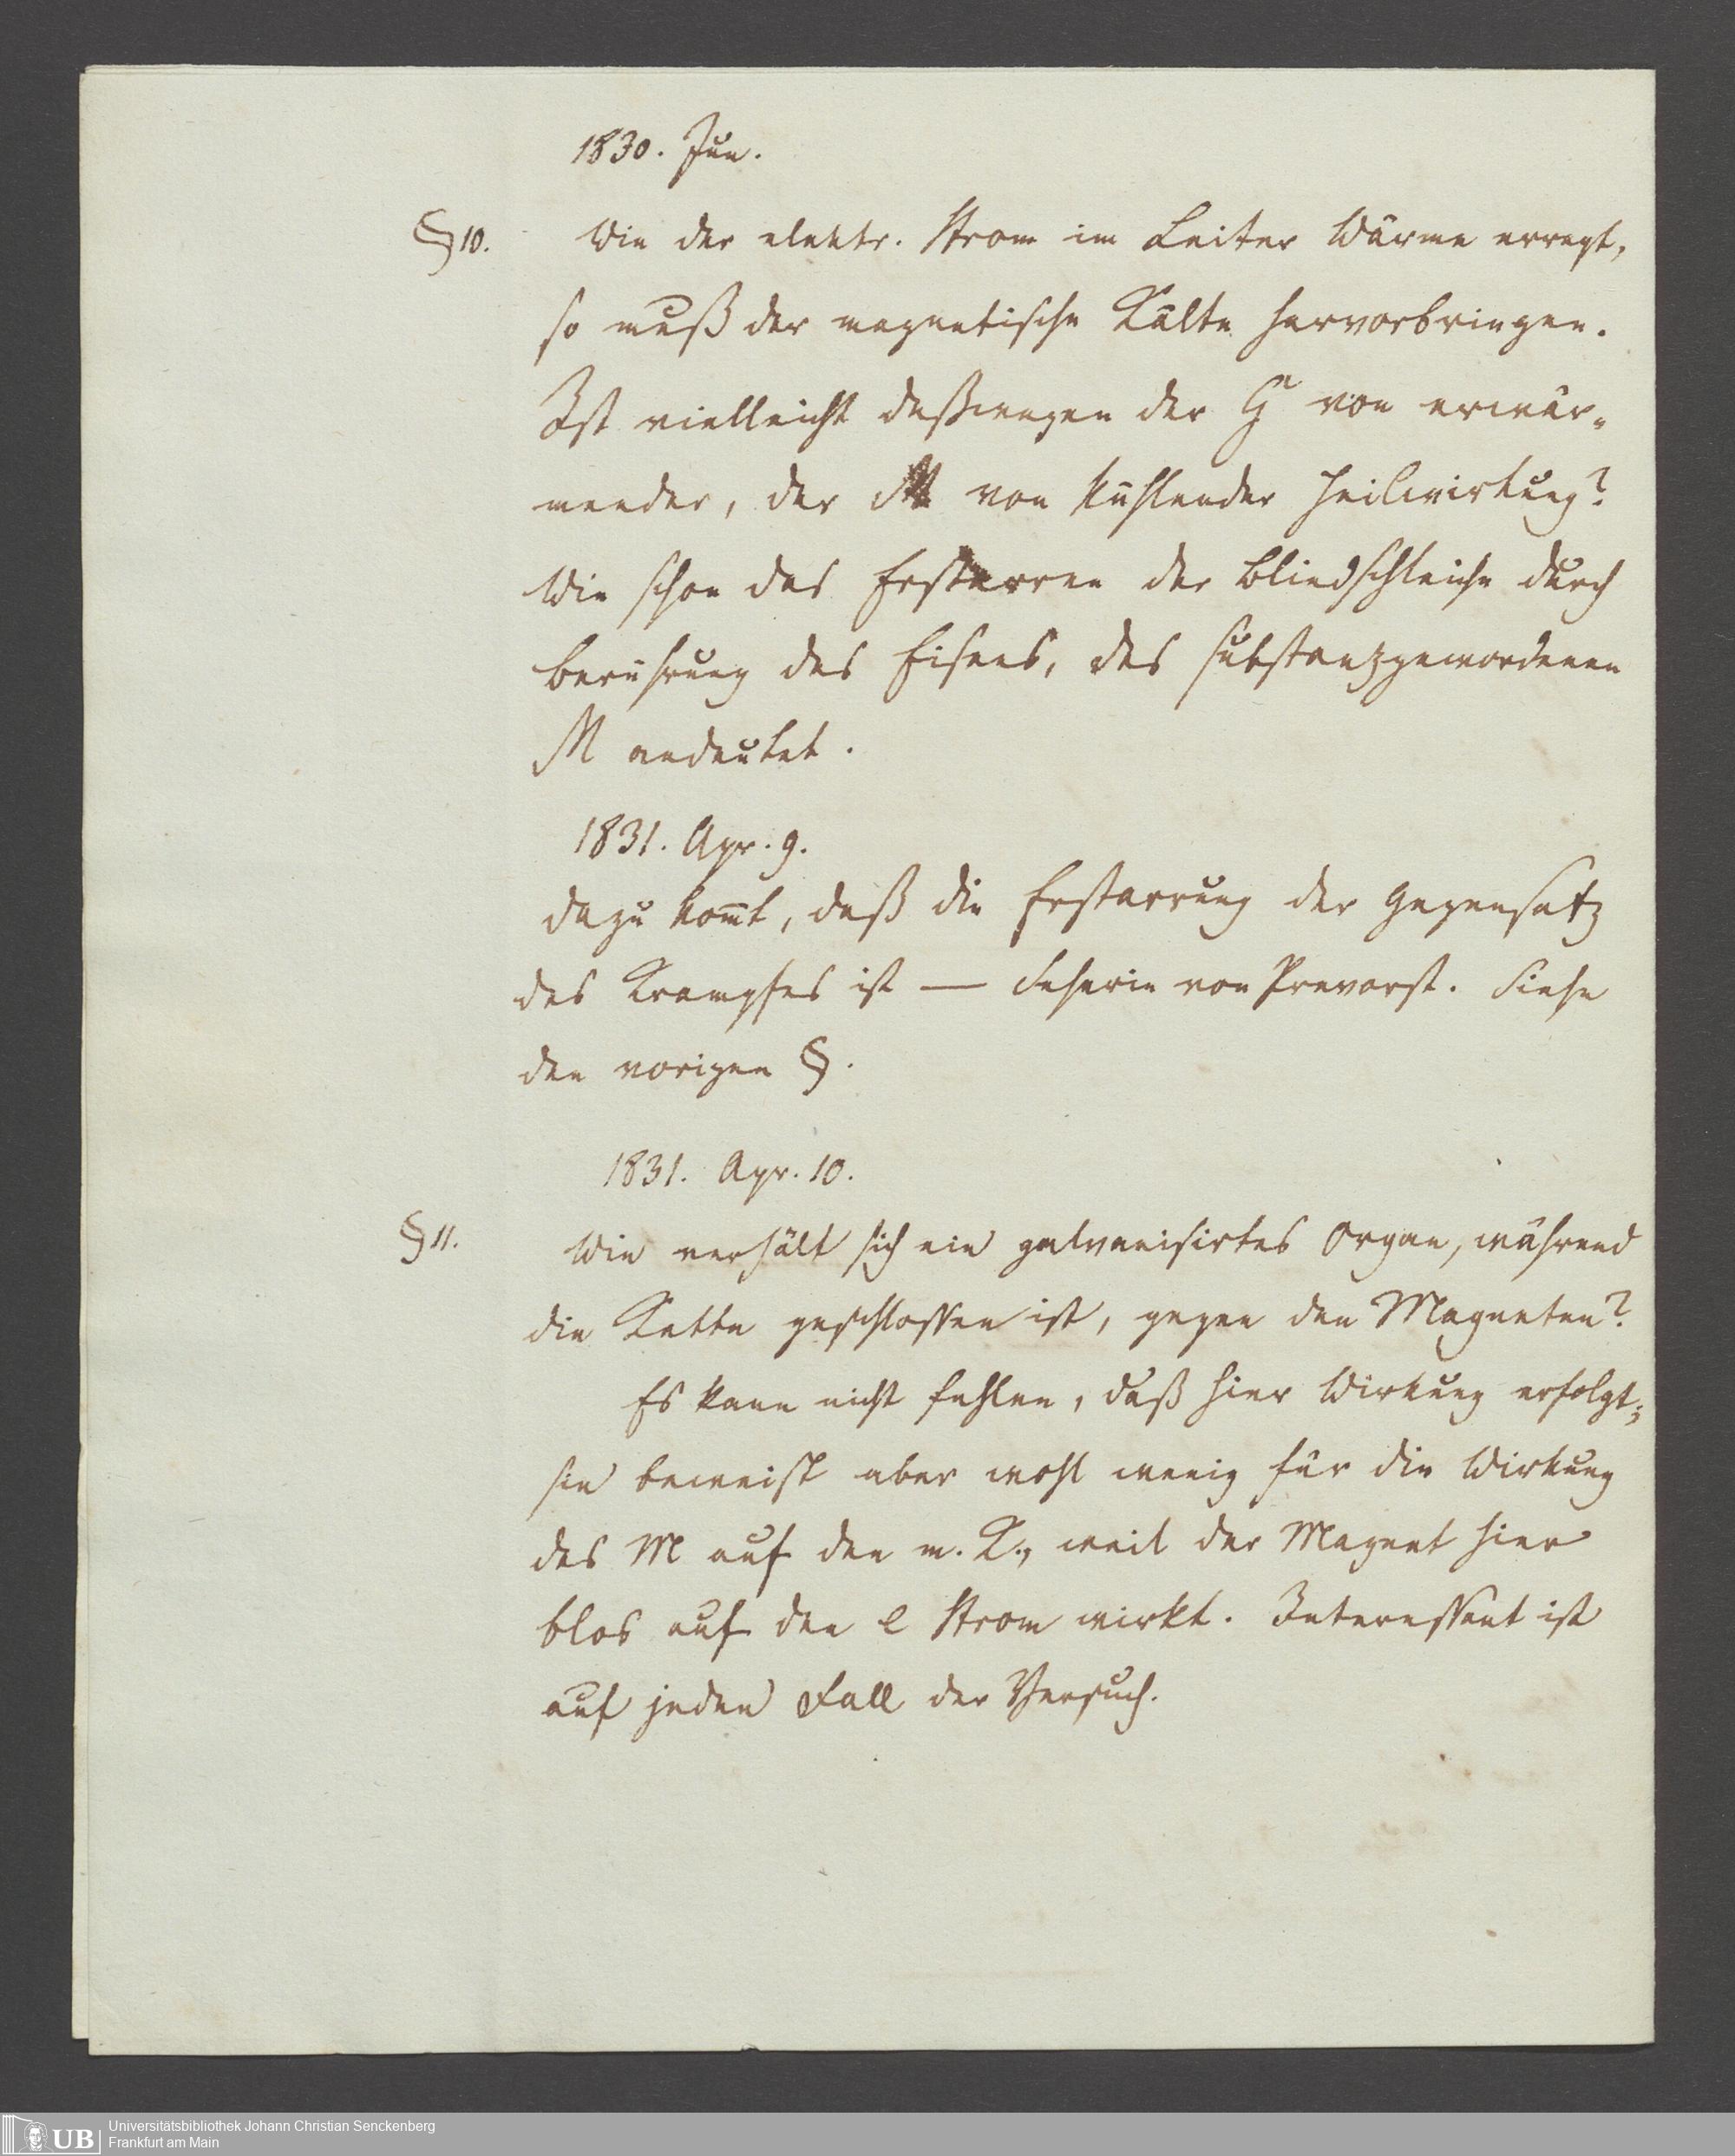 1830. Jun.
§10. Wie der elektr. Strom im Leiter Wärme erregt,
so muß der magnetische Kälte hervorbringen.
Ist vielleicht deßwegen der G von erwär-
mender, der M von kühlender Heilwirkung?
Wie schon das Erstarren der Blindschleiche durch
Berührung des Eisens, des substanzgewordenen
M andeutet.
1831. Apr. 9.
Dazu kom̅t, daß die Erstarrung der Gegensatz
des Krampfes ist — Seherin von Prevorst. Siehe
den vorigen §.
1831. Apr. 10.
§11. Wie verhält sich ein galvanisirtes Organ, während
die Kette geschlossen ist, gegen den Magneten?
Es kann nicht fehlen, daß hier Wirkung erfolgt;
sie beweist aber wohl wenig für die Wirkung
des M auf den m. K., weil der Magnet hier
blos auf den e Strom wirkt. Interessant ist
auf jeden Fall der Versuch.
UB
Universitätsbibliothek Johann Christian Senckenberg
Frankfurt am Main